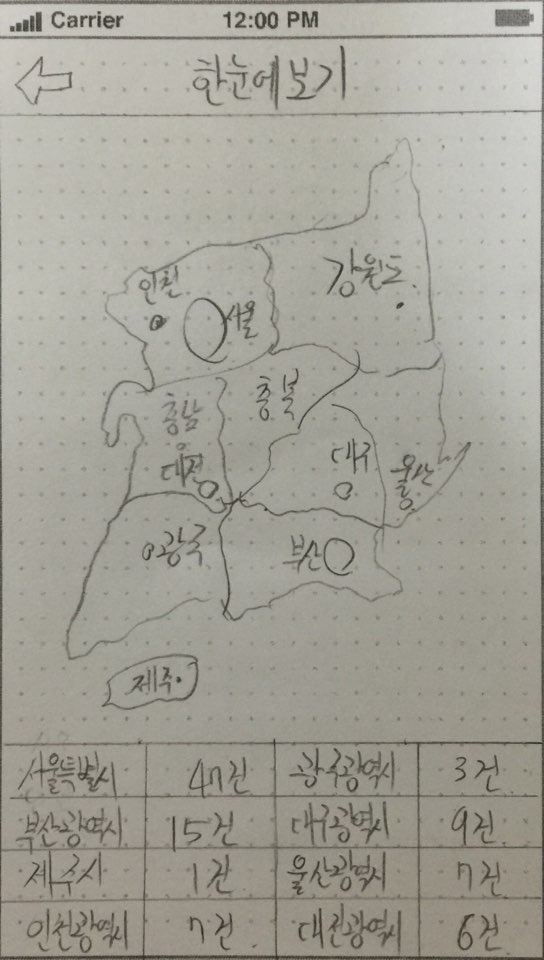 Carrier 12:00 PM
한눈에보기
인천
강원도
서울
충북
충남
대전
대구
울산
광주
부산
제주
서울특별시 47건 광주광역시 3건
부산광역시 15건 대구광역시 9건
제주시 1건 울산광역시 7건
인천광역시 7건 대전광역시 6건